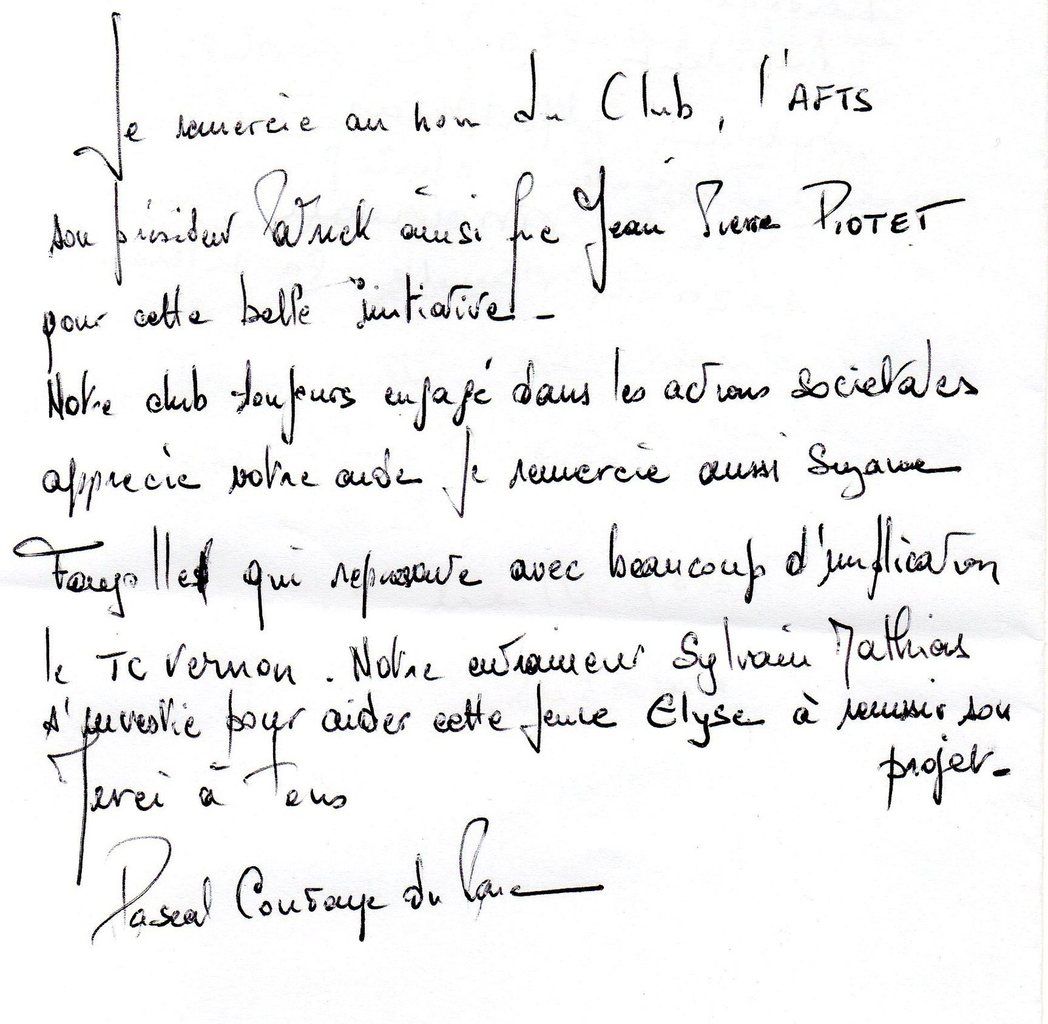 Je remercie au nom du Club, l'AFTS
son président Patrick ainsi que Jean Pierre PIOTET
pour cette belle initiative -
Notre club toujours engagé dans les actions societales
apprecie votre aide Je remercie aussi Suzanne
qui represente avec beaucoup d'implication
le TC Vernon. Notre entraineur Sylvain Mathias
s'investie pour aider cette jeune Elyse à reussir son
projet -
Merci à Tous
Pascal du